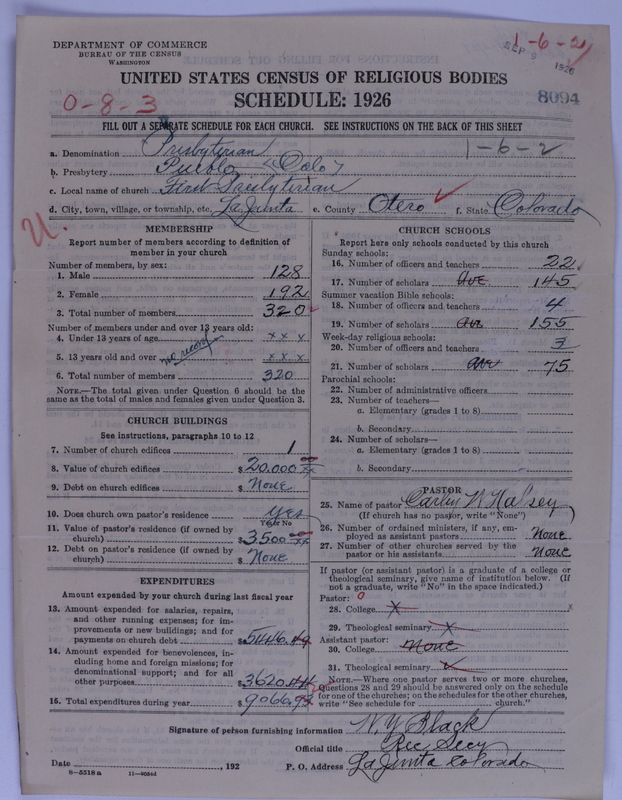 DEPARTMENT OF COMMERCE
BUREAU OF THE CENSUS
WASHINGTON
1-6-2
SEP 9 1926
UNITED STATES CENSUS OF RELIGIOUS BODIES
SCHEDULE: 1926
0-8-3
8094
FILL OUT A SEPARATE SCHEDULE FOR EACH CHURCH. SEE INSTRUCTIONS ON THE BACK OF THIS SHEET
a. Denomination Presbyterian 1-6-2
b. Presbytery Pueblo "Colo"
c. Local name of church First Presbyterian
d. City, town, village, or township, etc. La Junta e. County Otero f. State Colorado
U.
MEMBERSHIP
Report number of members according to definition of
member in your church
Number of members, by sex:
1. Male 128
2. Female 192
3. Total number of members 320
Number of members under and over 13 years old:
4. Under 13 years of age x x x
5. 13 years old and over no record x x x
6. Total number of members 320
NOTE.—The total given under Question 6 should be the
same as the total of males and females given under Question 3.
CHURCH BUILDINGS
See instructions, paragraphs 10 to 12
7. Number of church edifices 1
8. Value of church edifices $ 20,000 00
9. Debt on church edifices $ None
10. Does church own pastor's residence yes
Yes or No
11. Value of pastor's residence (if owned by
church) $ 3500 00
12. Debt on pastor's residence (if owned by
church) $ None
EXPENDITURES
Amount expended by your church during last fiscal year
13. Amount expended for salaries, repairs,
and other running expenses; for im-
provements or new buildings; and for
payments on church debt $ 5446.49
14. Amount expended for benevolences, in-
cluding home and foreign missions; for
denominational support; and for all
other purposes $ 3620.44
15. Total expenditures during year $ 9066.93
CHURCH SCHOOLS
Report here only schools conducted by this church
Sunday schools:
16. Number of officers and teachers 22
17. Number of scholars Ave 145
Summer vacation Bible schools:
18. Number of officers and teachers 4
19. Number of scholars Av 155
Week-day religious schools:
20. Number of officers and teachers 3
21. Number of scholars Ave 75
Parochial schools:
22. Number of administrative officers
23. Number of teachers—
a. Elementary (grades 1 to 8)
b. Secondary
24. Number of scholars—
a. Elementary (grades 1 to 8)
b. Secondary
PASTOR
25. Name of pastor Carley W Halsey
(If church has no pastor, write "None")
26. Number of ordained ministers, if any, em-
ployed as assistant pastors None
27. Number of other churches served by the
pastor or his assistants None
If pastor (or assistant pastor) is a graduate of a college or
theological seminary, give name of institution below. (If
not a graduate, write "No" in the space indicated.)
Pastor: 0
28. College X
29. Theological seminary X
Assistant pastor:
30. College None
31. Theological seminary
NOTE.—Where one pastor serves two or more churches,
Questions 28 and 29 should be answered only on the schedule
for one of the churches; on the schedules for the other churches,
write "See schedule for church."
Signature of person furnishing information W. Y. Black
Official title Rec Secy
Date , 192 P. O. Address La Junta Colorado
8-5518 a